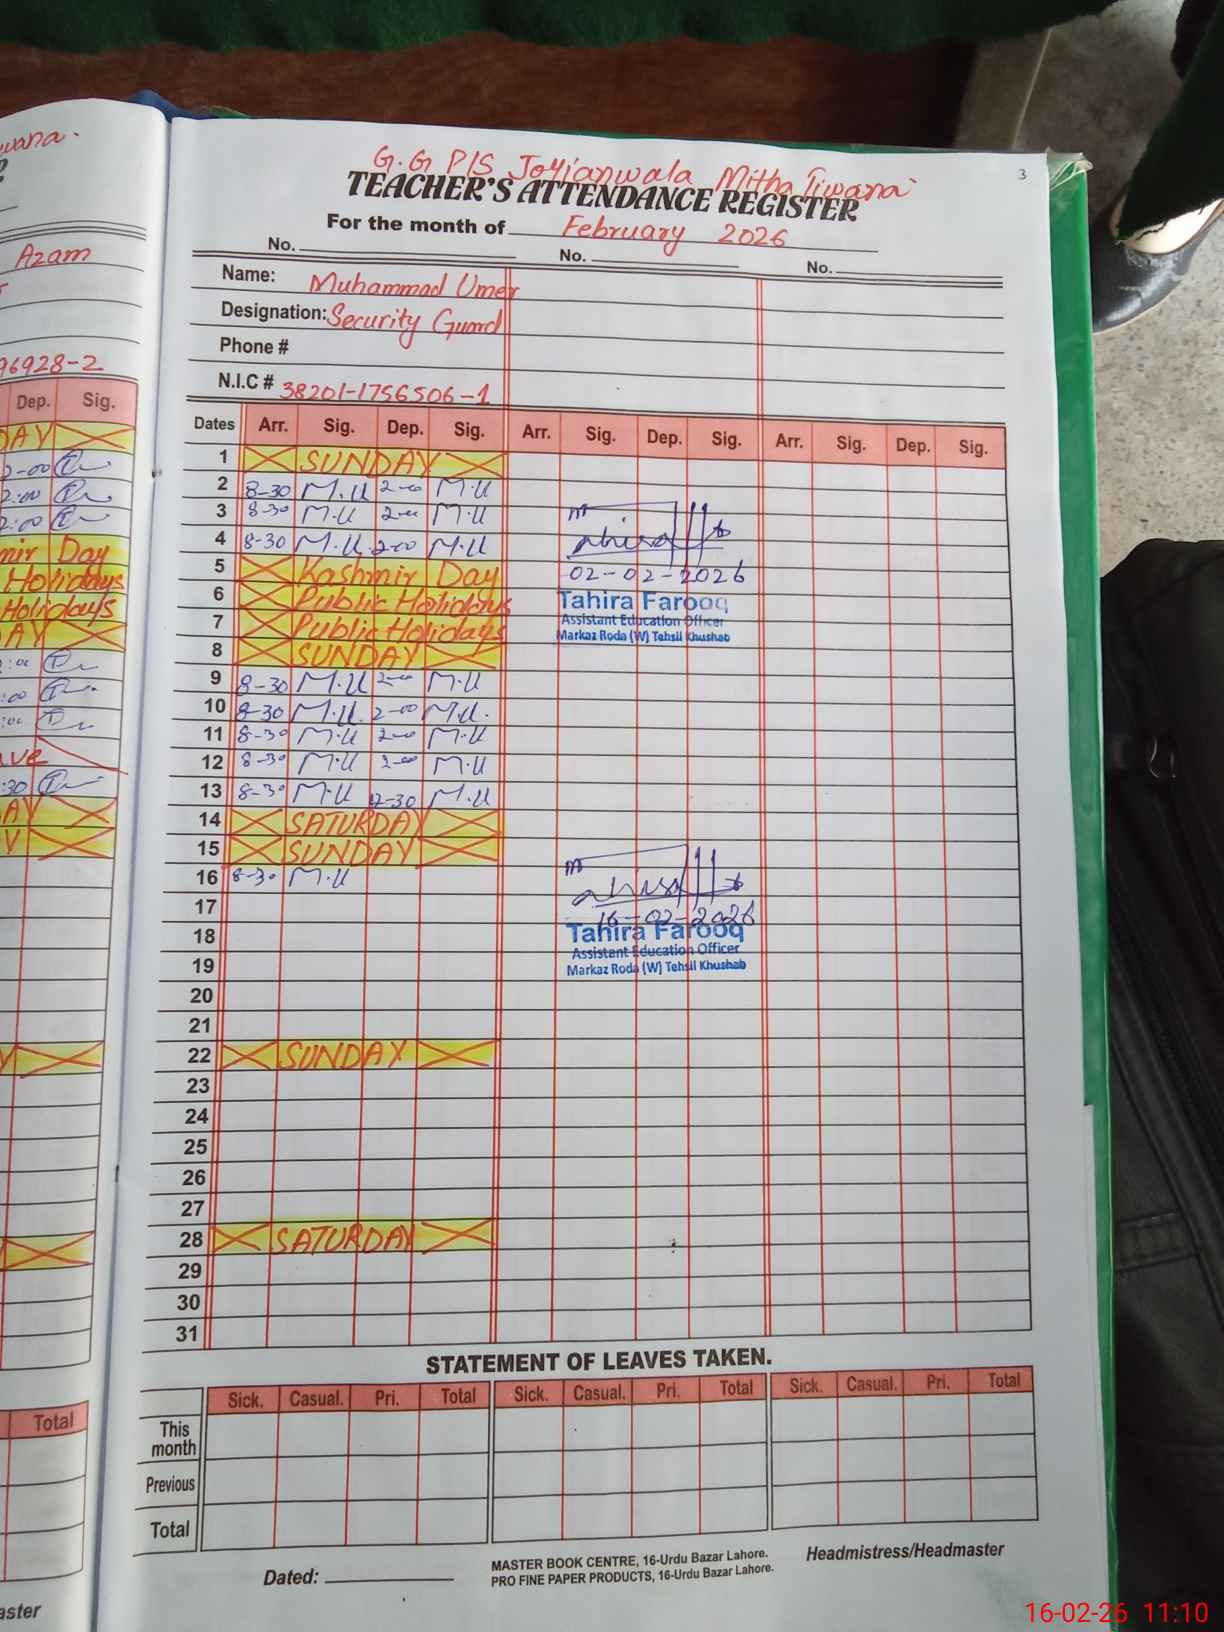 wana.
Azam
96928-2
Dep. Sig.
DAY
2-00
2:00
2:00
mir Day
Holidays
Holidays
AY
:00
:00
:00
ave
:30
AY
Y
Total
aster
3
G.G P/S Joyianwala Mitha Tiwana
TEACHER'S ATTENDANCE REGISTER
For the month of February 2026
No. No. No.
Name: Muhammad Umer
Designation: Security Guard
Phone #
N.I.C # 38201-1756506-1
Dates Arr. Sig. Dep. Sig. Arr. Sig. Dep. Sig. Arr. Sig. Dep. Sig.
1 SUNDAY
2 8-30 M.U 2-00 M.U
3 8-30 M.U 2-00 M.U
4 8-30 M.U 2-00 M.U
5 Kashmir Day 02-02-2026
6 Public Holidays Tahira Farooq
7 Public Holidays Assistant Education Officer
Markaz Roda (W) Tehsil Khushab
8 SUNDAY
9 8-30 M.U 2-00 M.U
10 8-30 M.U. 2-00 M.U.
11 8-30 M.U 2-00 M.U
12 8-30 M.U 2-00 M.U
13 8-30 M.U 12-30 M.U
14 SATURDAY
15 SUNDAY
16 8-30 M.U
17 16-02-2026
18 Tahira Farooq
Assistant Education Officer
19 Markaz Roda (W) Tehsil Khushab
20
21
22 SUNDAY
23
24
25
26
27
28 SATURDAY
29
30
31
STATEMENT OF LEAVES TAKEN.
Sick. Casual. Pri. Total Sick. Casual. Pri. Total Sick. Casual. Pri. Total
This month
Previous
Total
Dated:
MASTER BOOK CENTRE, 16-Urdu Bazar Lahore.
PRO FINE PAPER PRODUCTS, 16-Urdu Bazar Lahore.
Headmistress/Headmaster
16-02-26 11:10